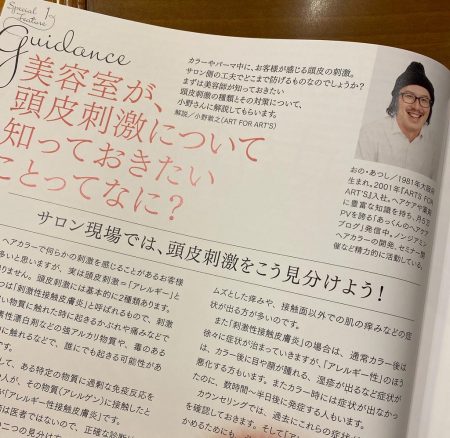 Special Feature 1
Guidance
美容室が、
頭皮刺激について
知っておきたい
ことってなに？
カラーやパーマ中に、お客様が感じる頭皮の刺激。
サロン側の工夫でどこまで防げるものなのでしょうか？
まずは美容師が知っておきたい
頭皮刺激の種類とその対策について、
小野さんに解説してもらいます。
解説／小野敦之（ART FOR ART'S）
おの・あつし／1981年大阪
生まれ。2001年『ARTS FOR
ART'S』入社。ヘアケアや薬剤
に豊富な知識を持ち、月5万
PVを誇る「あっくんのヘアケア
ブログ」発信中。ノンジアミン
ヘアカラーの開発、セミナー開
催など精力的に活動している。
サロン現場では、頭皮刺激をこう見分けよう！
ヘアカラーで何らかの刺激を感じることがあるお客様
多いと思いますが、実は頭皮刺激＝「アレルギー」と
りません。頭皮刺激には基本的に2種類あります。
つは「刺激性接触皮膚炎」と呼ばれるもので、刺激
い物質に触れた時に起きるかぶれや痛みなどで
性漂白剤などの強アルカリ物質や、毒のある
に触れるなどで、誰にでも起きる可能性があ
して、ある特定の物質に過剰な免疫反応を
人が、その物質（アレルゲン）に接触したと
が「アレルギー性接触皮膚炎」です。
は医者ではないので、正確な診断
二つの見分け
ムズとした痒みや、接触面以外での肌の痒みなどの症
状が出る方が多いのです。
また「刺激性接触皮膚炎」の場合は、通常カラー後は
徐々に症状が治まっていきますが、「アレルギー性」のほう
は、カラー後に目や顔が腫れる、湿疹が出るなど症状が
悪化する方もいます。またカラー時には症状が出なかっ
たのに、数時間〜半日後に発症する人もいます。
カウンセリングでは、過去にこれらの症状が
を確認しておきます。そして「ア
かめるためにも